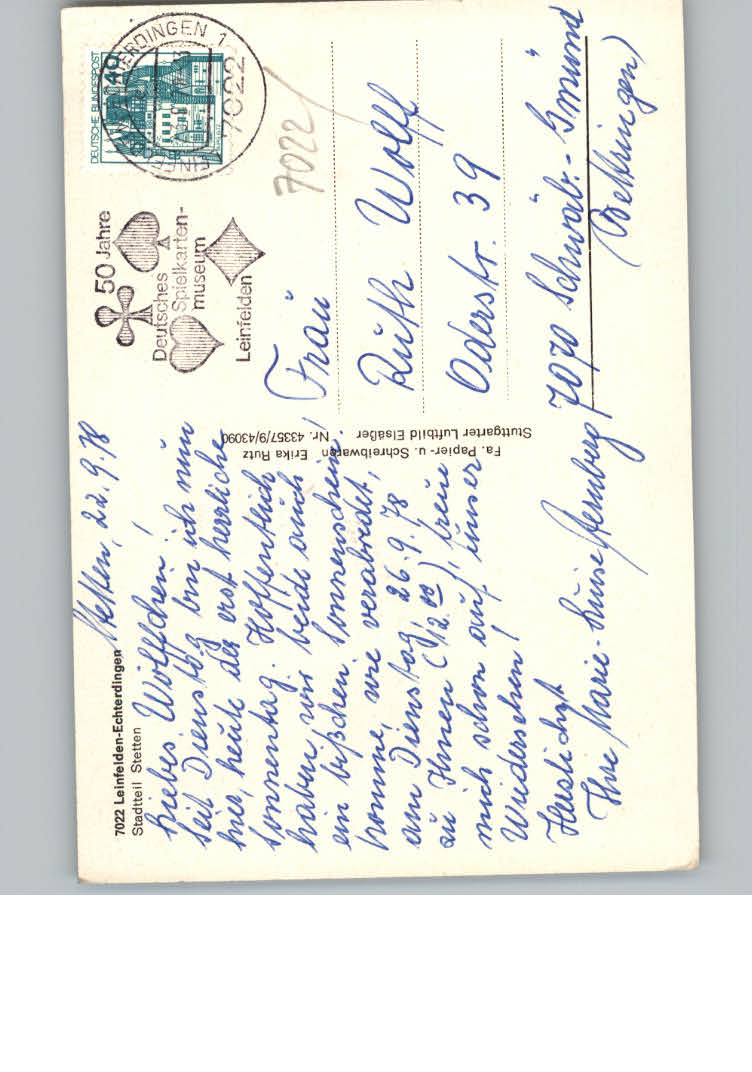 7022 Leinfelden-Echterdingen
Stadtteil Stetten
Stetten, 22.9.78
Liebes Wölffchen!
Seit Dienstag bin ich nun
hier, heute der erst herrliche
Sonnentag. Hoffentlich
haben wir beide auch
ein bißchen Sonnenschein!
Komme, wie verabredet,
am Dienstag, 26.9.78
zu Ihnen (12.00), freue
mich schon auf unser
Wiedersehen!
Herzlichst
Ihre Marie-Luise Sternberg
Fa. Papier- u. Schreibwaren Erika Rutz
Stuttgarter Luftbild Elsäßer Nr. 43357/9/43090
50 Jahre
Deutsches
Spielkarten-
museum
Leinfelden
DEUTSCHE BUNDESPOST
40
ERDINGEN 1
7022
7022
Frau
Ruth Wolff
Oderstr. 39
7070 Schwäb.-Gmünd
(Bettringen)